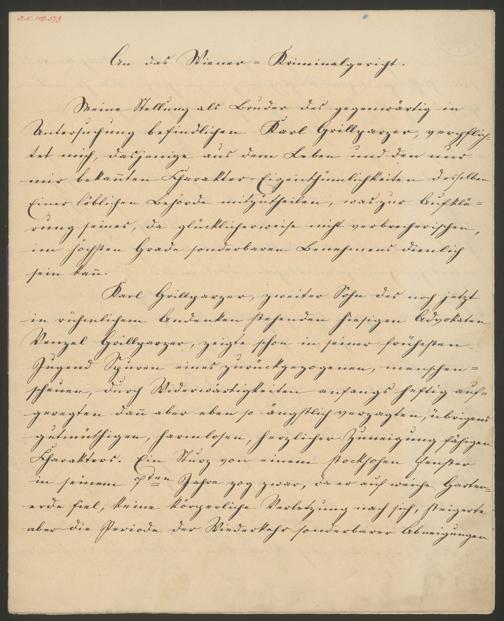 An das Wiener-Kriminalgericht.
Meine Stellung als Bruder des gegenwärtig in
Untersuchung befindlichen Karl Grillparzer, verpflich-
tet mich, dasjenige aus dem Leben und den nur
mir bekañten Charakter-Eigenthümlichkeiten desselben
Einer löblichen Behörde mitzutheilen, was zur Aufklä-
rung seines, da glücklicherweise nicht verbrecherischen,
im höchsten Grade sonderbaren Benehmens dienlich
sein kañ.
Karl Grillparzer, zweiter Sohn des noch jetzt
in rühmlichem Andenken stehenden hiesigen Advokaten
Wenzel Grillparzer, zeigte schon in seiner frühesten
Jugend Spuren eines zurückgezogenen, menschen-
scheuen, durch Widerwärtigkeiten anfangs heftig auf-
geregten dañ aber eben so ängstlich verzagten, übrigens
gutmüthigen, harmlosen, herzlicher Zuneigung fähigen
Charakters. Ein Sturz von einem stockhohen Fenster
in seinem ten Jahre zog zwar, da er auf weiche Garten-
erde fiel, keine körperliche Verletzung nach sich, steigerte
aber die Periode der Wiederkehr sonderbarer Abneigungen